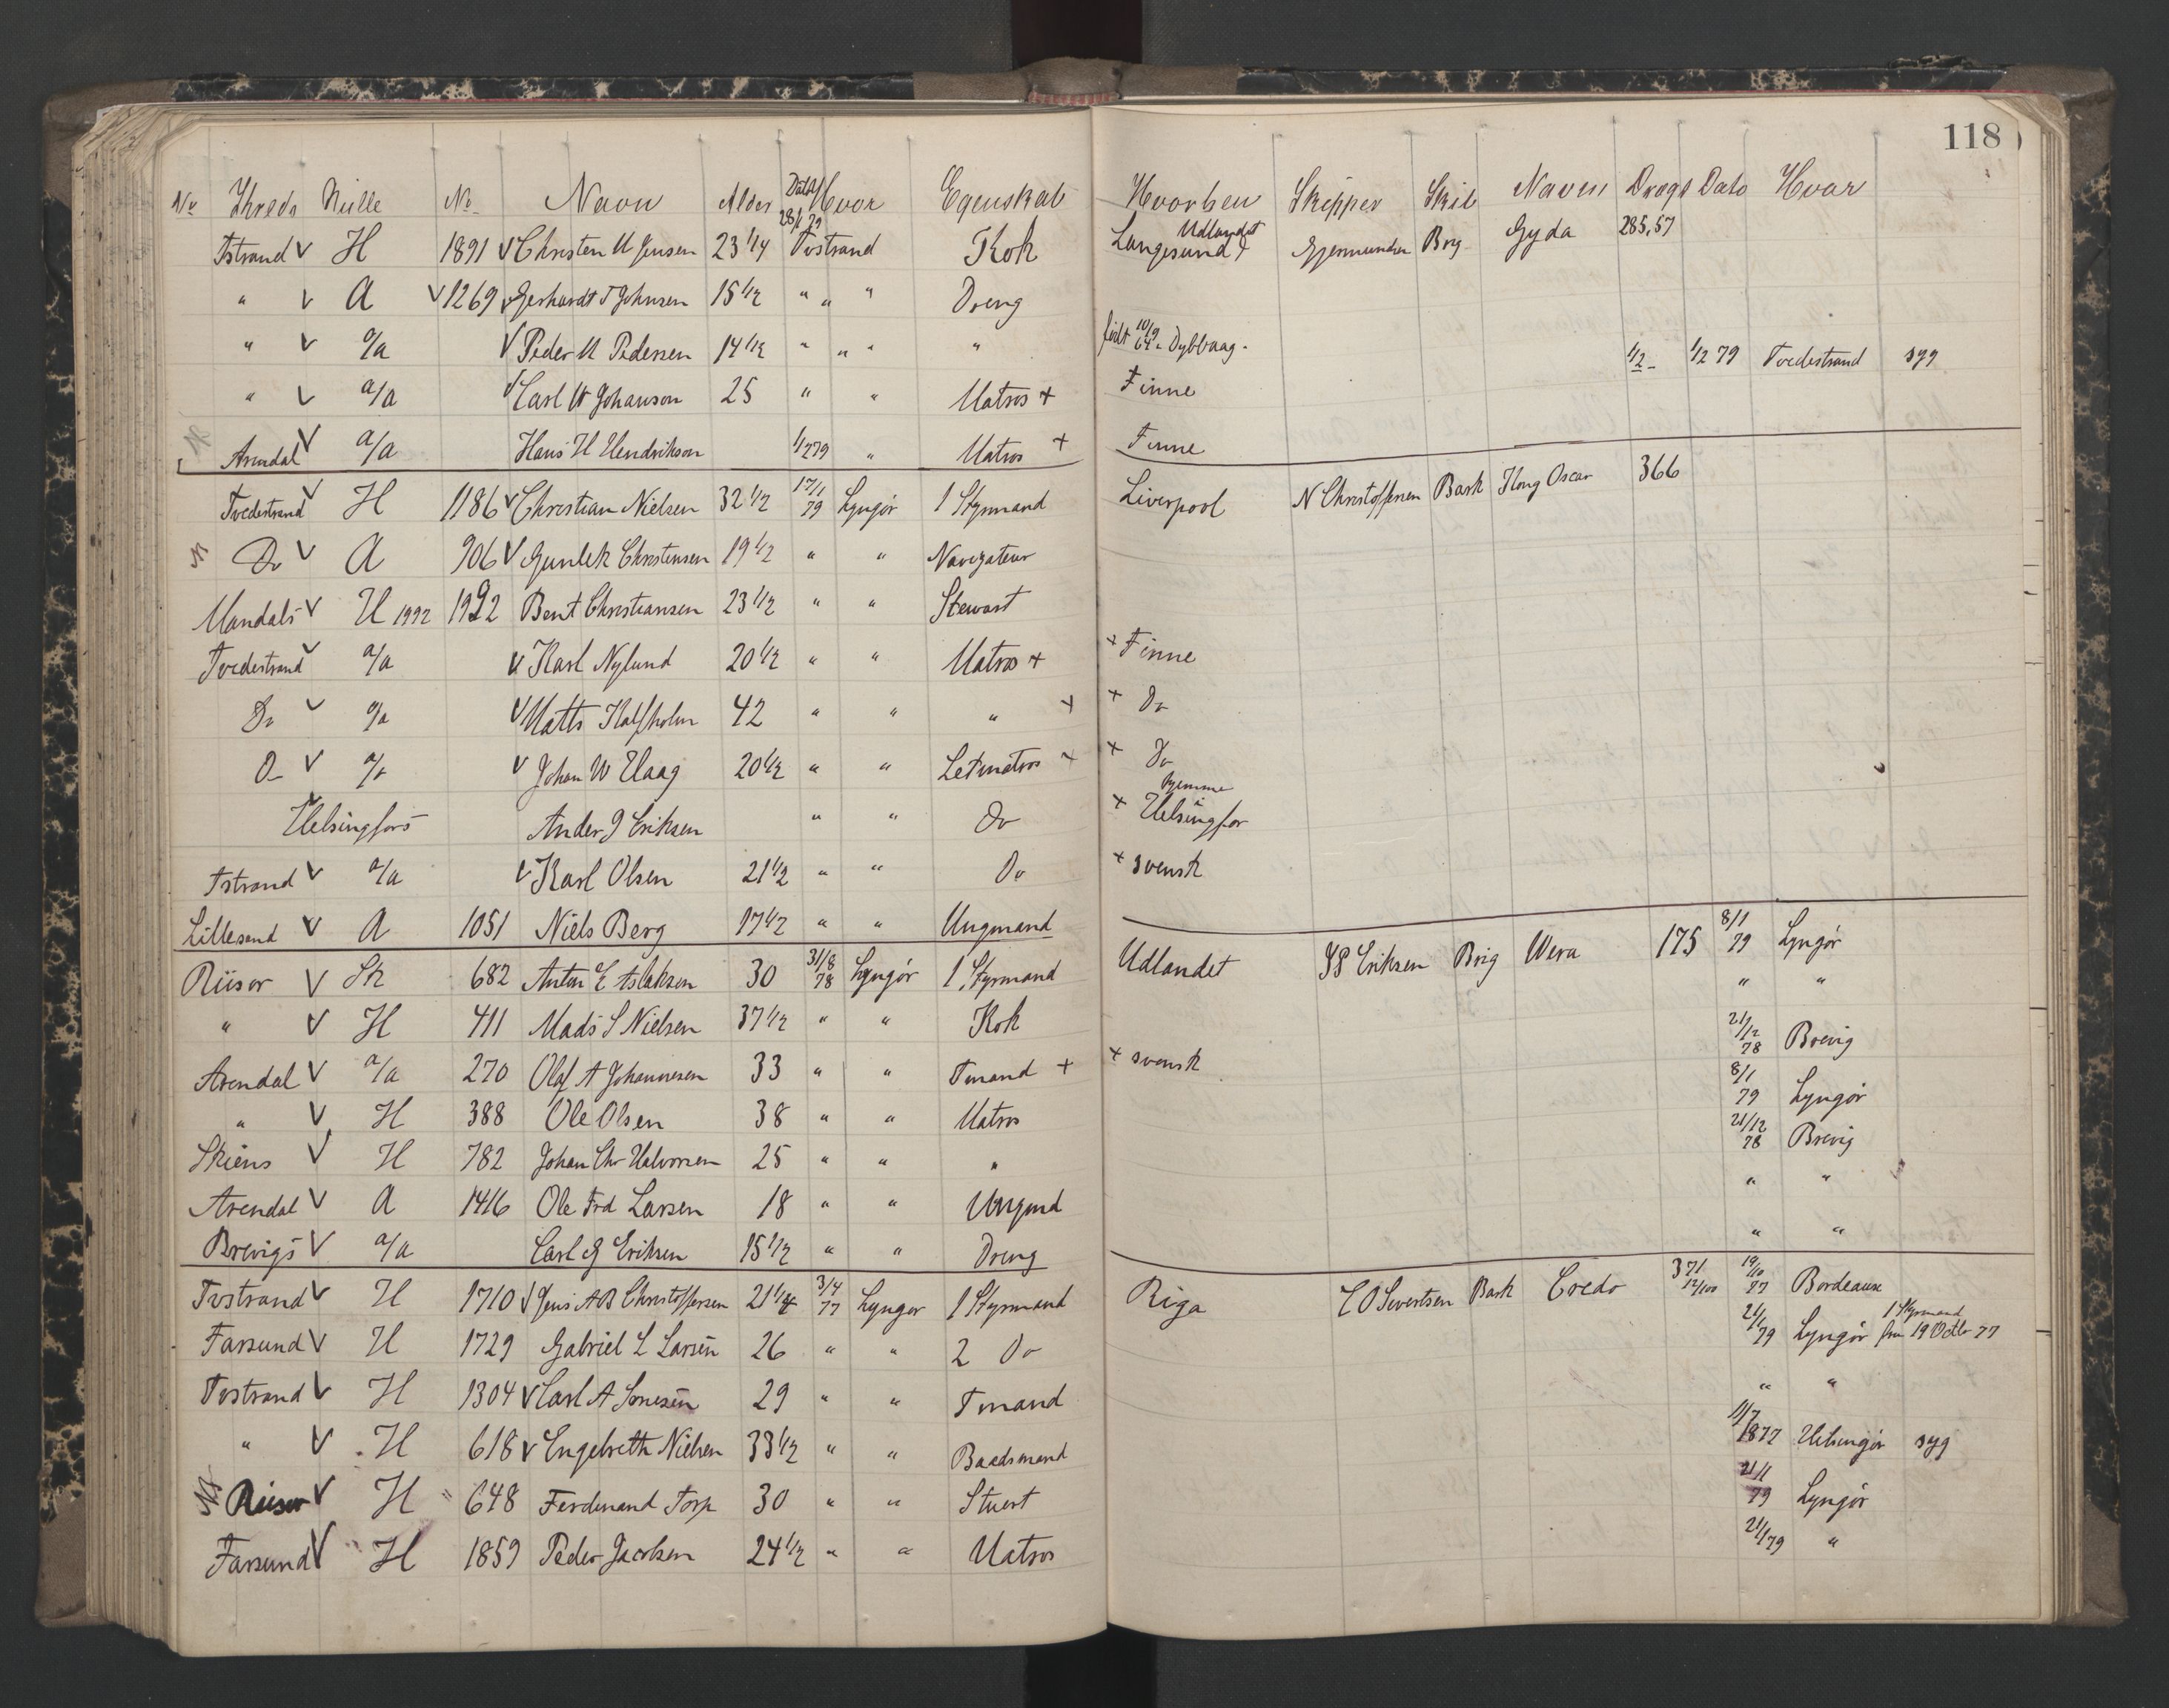 118
No Kreds Rulle No Navn Alder Dato Hvor Egenskab Hvorhen Skipper Skib Navn Drægt Dato Hvor
Tstrand V H 1891 V Christen M Jensen 23 1/4 28/1 79 Tvstrand Kok Langesund & Udlandet Gjermundsen Brg Gyda 285,57
" V A V 1269 V Gerhardt T Johnsen 15 1/2 " " " Dreng
" V a/a V Peder M Pedersen 14 1/2 " " " " født 10/9 64 Dybvaag. 1/2 - 1/2 79 Tvedestrand syg
" V a/a V Carl W Johanson 25 " " Matros + Finne
Arendal V a/a Hans H Hendrikson 1/2 79 " Matros + Finne
Tvedestrand V H 1186 V Christian Nielsen 32 1/2 17/1 79 Lyngør 1 Styrmand Liverpool N Christoffersen Bark Kong Oscar 366
Do V A 906 V Gunlek Christensen 19 1/2 " " Navigateur
Mandals V H 1992 1992 Bent Christiansen 23 1/2 " " Stewart
Tvedestrand V a/a V Karl Nylund 20 1/2 " " Matros + + Finne
Do V a/a V Matts Kalfholm 42 " " " + + Do
Do V a/a V Johan W Haag 20 1/2 " " Letmatros + + Do
Helsingfors Ander J Eriksen " " Do + Hjemme i Helsingfor
Tstrand V a/a V Karl Olsen 21 1/2 " " Do + svensk
Lillesand V A 1051 Niels Berg 17 1/2 " " Ungmand
Riisør V Sk 682 Anton E Aslaksen 30 31/8 78 Lyngør 1 Styrmand Udlandet Eriksen Brig Wera 175 8/1 79 Lyngør
" V H 411 Mads S Nielsen 37 1/2 " " Kok " "
Arendal V a/a 270 Olaf A Johannesen 33 " " Tmand + + svensk 21/12 78 Brevig
" V H 388 Ole Olsen 38 " " Matros 8/1 79 Lyngør
Skiens V H 782 Johan Chr Halvorsen 25 " " " 21/12 78 Brevig
Arendal V A 1416 Ole Frd Larsen 18 " " Ungmd " "
Brevigs V a/a Carl G Eriksen 15 1/2 " " Dreng " "
Tvstrand V H 1710 V Jens A B Christoffersen 21 1/4 3/4 77 Lyngør 1 Styrmand Riga C O Sivertsen Bark Credo 371 12/100 19/10 77 Bordeaux
Farsund V H 1729 Gabriel L Larsen 26 " " 2 Do 21/1 79 Lyngør 1 Styrmand fra 19 Octbr 77
Tvstrand V H 1304 V Carl A Sørnesen 29 " " Tmand " "
" V H 618 V Engebreth Nielsen 33 1/2 " " Baadsmand 11/7 1877 Helsingør syg
Riisør V H " 648 Ferdinand Torp 30 " " Stuert 21/1 79 Lyngør
Farsund V H 1859 Peder Jacobsen 24 1/2 " " Matros 21/1 79 "